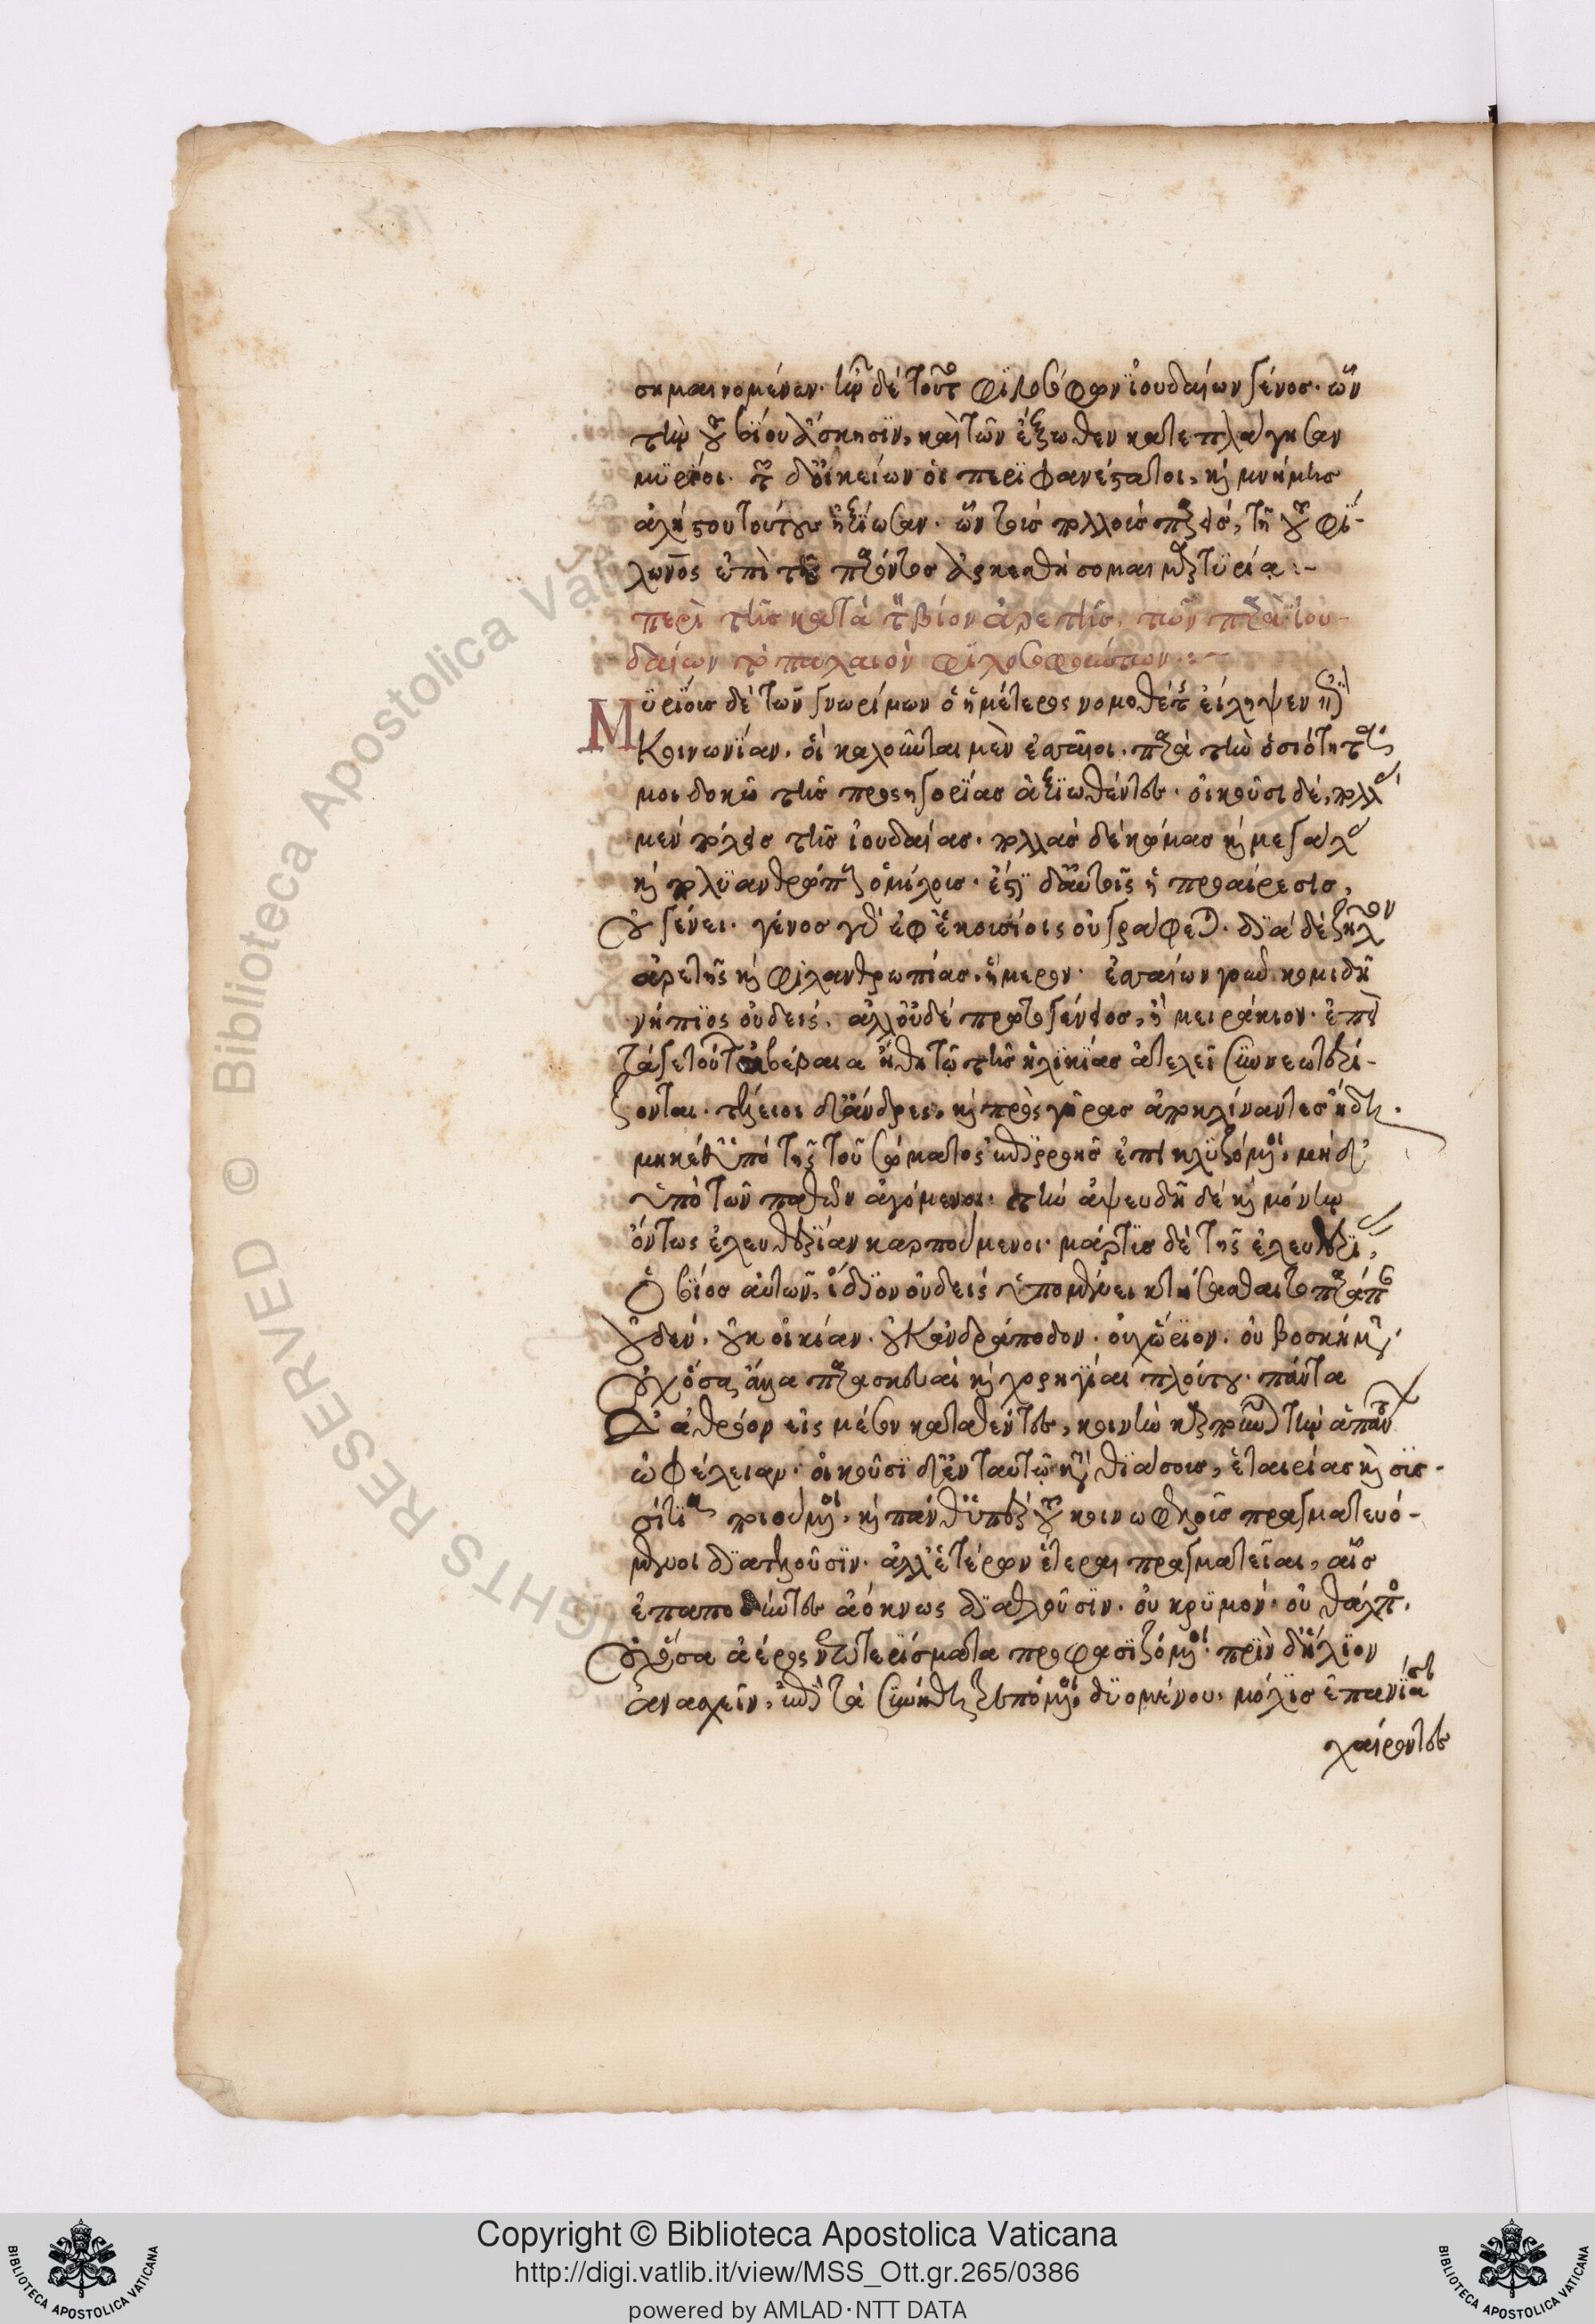 σημαινομένων. ἦν δὲ τοῦτο φιλοσόφων ἰουδαίων γένος. ὧν
τὴν τοῦ βίου ἄσκησιν, καὶ τῶν ἔξωθεν κατεπλάγησαν
μυρίοι. τῶν δ' οἰκείων οἱ περιφανέστατοι, καὶ μνήμης
ἀλήστου τούτους ἠξίωσαν.
ἐπὶ τοῦ παρόντος ἀρκεσθήσομαι μαρτυρία:-
περὶ τῆς κατὰ τὸν βίον ἀρετῆς, τῶν παρὰ ἰου-
δαίων τὸ παλαιὸν φιλοσοφούντων:-
Μυρίους δὲ τῶν γνωρίμων ὁ ἡμέτερος νομοθέτης εἴληψεν ἐπὶ
κοινωνίαν. οἱ καλοῦνται μὲν ἐσσαῖοι. παρὰ τὴν ὁσιότητα
μοι δοκῶ τῆς προσηγορίας ἀξιωθέντες. οἰκοῦσι δὲ, πολλὰς
μὲν πόλεις τῆς ἰουδαίας. πολλὰς δὲ κώμας καὶ μεγάλους
καὶ πολυανθρώπους ὁμίλους. ἔστι δ' αὐτοῖς ἡ προαίρεσις,
οὐ γένει. γένος γὰρ ἐφ' ἑκουσίοις οὐ γράφεται. διὰ δὲ ζῆλον
ἀρετῆς καὶ φιλανθρωπίας ἵμερον. ἐσσαίων γοῦν κομιδῇ
νήπιος οὐδείς. ἀλλ' οὐδὲ πρωτογένειος, ἢ μειράκιον. ἐπεὶ
τά γε τούτων ἀβέβαια ἤθη τῷ τῆς ἡλικίας ἀτελεῖ συννεωτερί-
ζονται. τέλειοι δ' ἄνδρες, καὶ πρὸς γῆρας ἀποκλίναντες ἤδη.
μηκέθ' ὑπὸ τῆς τοῦ σώματος ἐπιρροῆς ἐπικλυζόμενοι, μήδ'
ὑπὸ τῶν παθῶν ἀγόμενοι. τὴν ἀψευδῆ δὲ καὶ μόνην
ὄντως ἐλευθερίαν καρπούμενοι. μάρτυς δὲ τῆς ἐλευθερίας
ὁ βίος αὐτῶν, ἴδιον οὐδεὶς ὑπομένει κτήσασθαι τὸ παράπαν
οὐδέν. οὐκ οἰκίαν. οὐκ ἀνδράποδον. οὐ χωρίον. οὐ βοσκήματα.
οὐχ ὅσα ἄλλα παρασκευαὶ καὶ χορηγίαι πλούτου. πάντα
δ' ἀθρόον εἰς μέσον καταθέντες, κοινὴν καρποῦνται τὴν ἁπάντων
ὠφέλειαν. οἰκοῦσι δ' ἐν ταυτῷ κατὰ θιάσους, ἑταιρίας καὶ συσ-
σίτια ποιούμενοι, καὶ πάνθ' ὑπὲρ τοῦ κοινωφελοῦς πραγματευό-
μενοι διατελοῦσιν. ἀλλ' ἑτέρων ἕτεραι πραγματεῖαι, αἷς
ἐπαποδύντες ἀόκνως διαθλοῦσιν. οὐ κρυμόν. οὐ θάλπος.
οὐχ ὅσα ἀέρος νεωτερίσματα προφασιζόμενοι. πρὶν δ' ἥλιον
ἀνασχεῖν, ἐπὶ τὰ συνήθη τρεπόμενοι, δυομένου, μόλις ἐπανίασι
χαίροντες
Copyright © Biblioteca Apostolica Vaticana
http://digi.vatlib.it/view/MSS_Ott.gr.265/0386
powered by AMLAD·NTT DATA